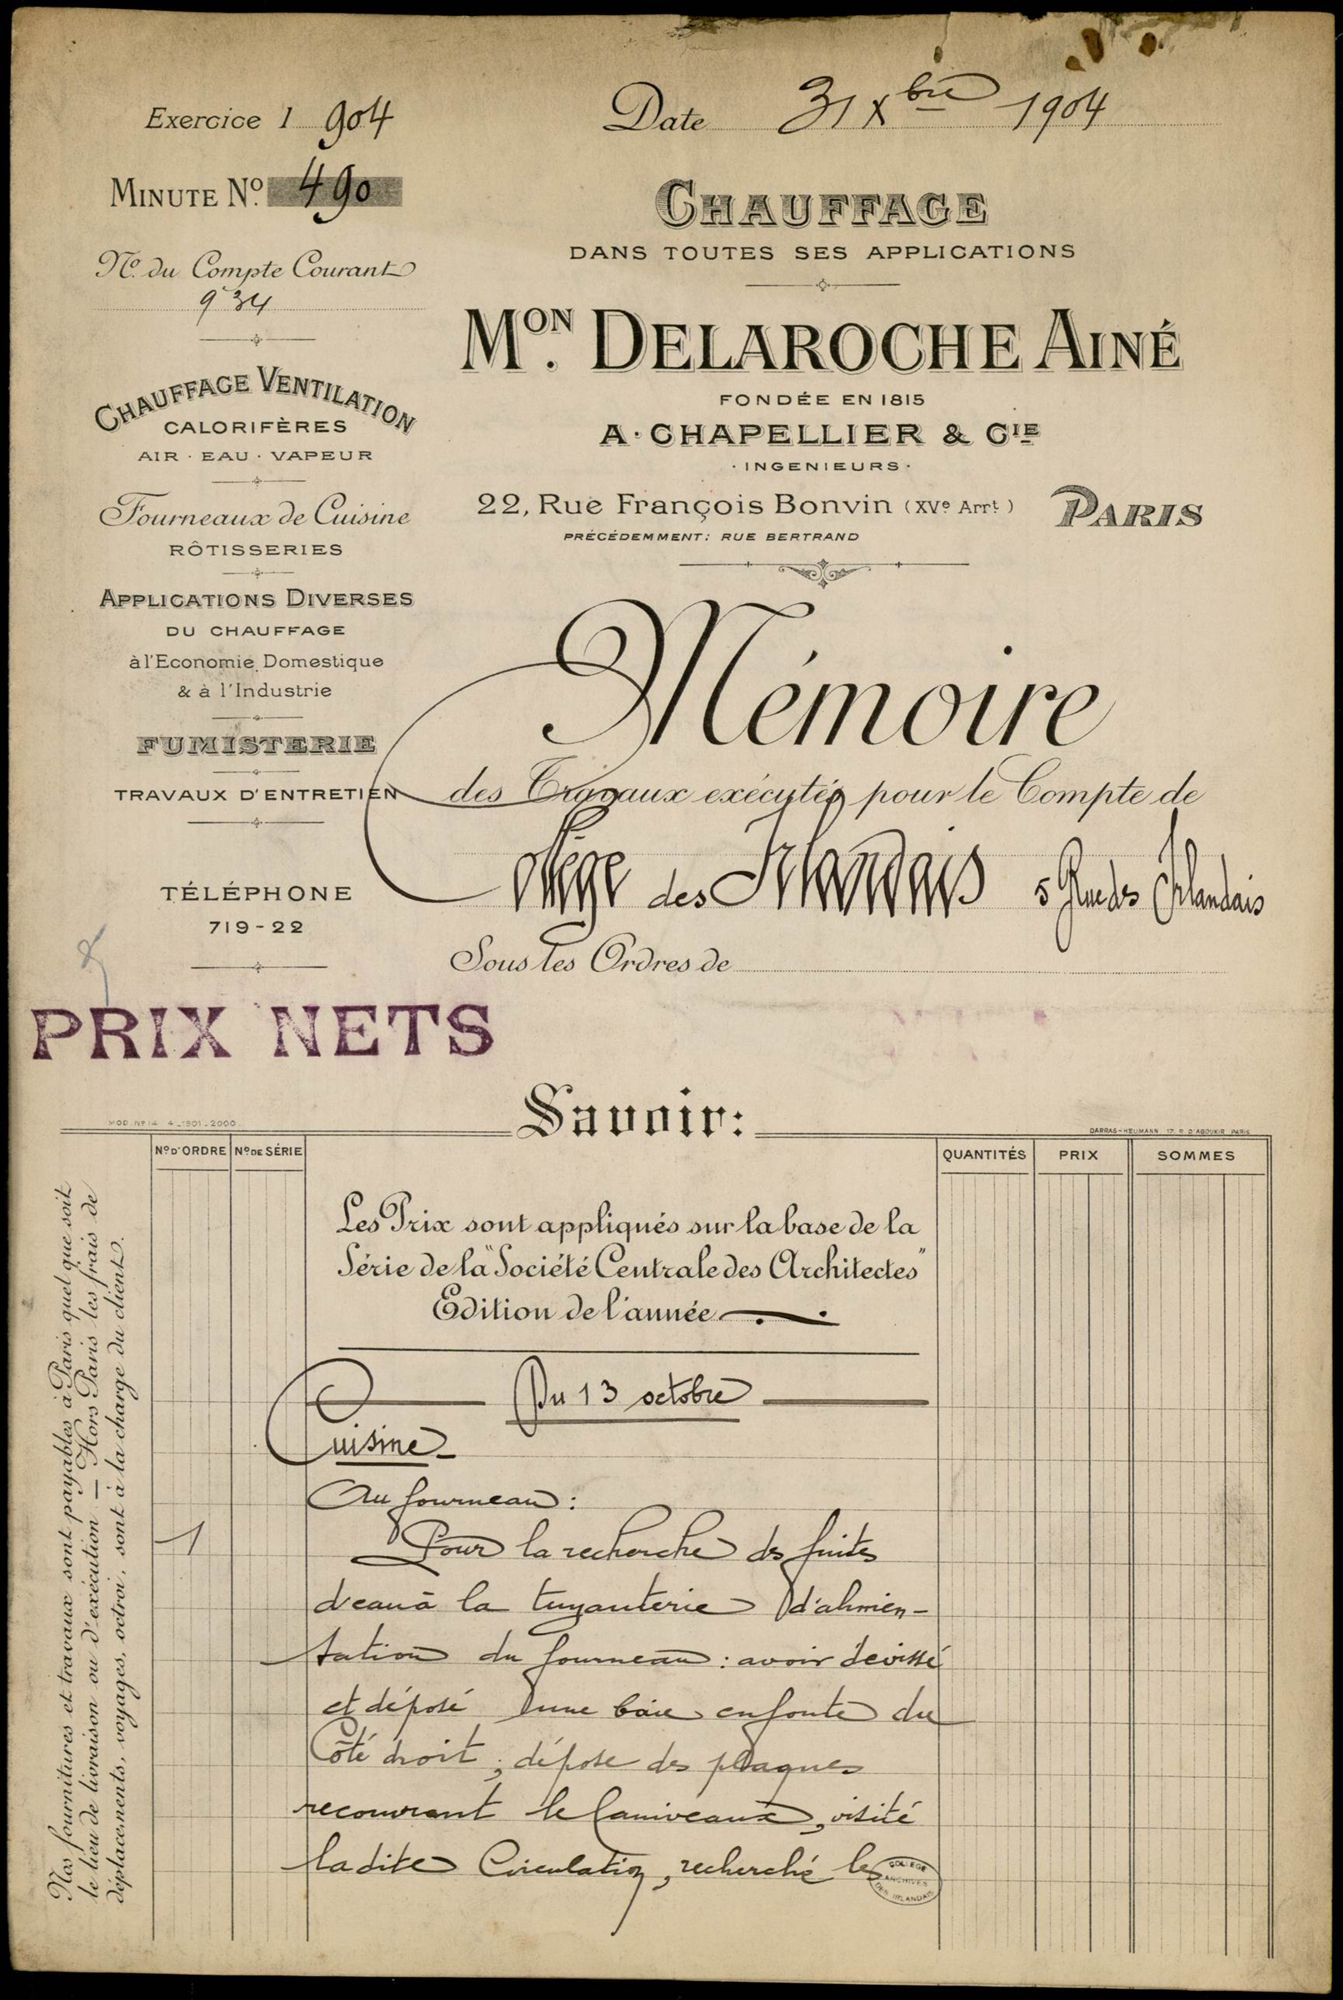 Exercice 1904
Date 31 Xbre 1904
MINUTE No. 490
No. du Compte Courant
934
CHAUFFAGE VENTILATION
CALORIFÈRES
AIR · EAU · VAPEUR
Fourneaux de Cuisine
RÔTISSERIES
APPLICATIONS DIVERSES
DU CHAUFFAGE
à l'Economie Domestique
& à l'Industrie
FUMISTERIE
TRAVAUX D'ENTRETIEN
TÉLÉPHONE
719-22
CHAUFFAGE
DANS TOUTES SES APPLICATIONS
MON. DELAROCHE AINÉ
FONDÉE EN 1815
A. CHAPELLIER & CIE
· INGENIEURS ·
22, Rue François Bonvin (XVe Arrt) PARIS
PRÉCÉDEMMENT: RUE BERTRAND
Mémoire
des Travaux exécutés pour le Compte de
Collège des Irlandais 5 Rue des Irlandais
Sous les Ordres de
PRIX NETS
Savoir:
MOD. No 14 4-1901-2000
DARRAS-HEUMANN 17 R. D'ABOUKIR PARIS
No D'ORDRE No DE SÉRIE QUANTITÉS PRIX SOMMES
Nos fournitures et travaux sont payables à Paris quel que soit
le lieu de livraison ou d'exécution — Hors Paris les frais de
déplacements, voyages, octroi, sont à la charge du client.
Les Prix sont appliqués sur la base de la
Série de la "Société Centrale des Architectes"
Edition de l'année
Du 13 octobre
Cuisine
Au fourneau :
1 Pour la recherche des fuites
d'eau à la tuyauterie d'alimen-
tation du fourneau : avoir dévissé
et déposé une baie en fonte du
Côté droit, dépose des plaques
recouvrant le Caniveaux, visité
ladite Circulation, recherché les
COLLEGE
ARCHIVES
DES IRLANDAIS